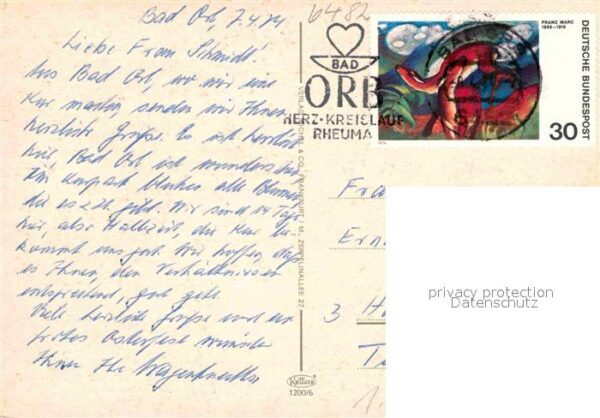 Bad Orb, 7.4.74
6482
Liebe Frau Schmidt!
Aus Bad Orb, wo wir eine
Kur machen senden wir Ihnen
herzliche Grüße. Es ist herrlich
hier, Bad Orb ist wunderschön
Im Kurpark blühen alle Blumen
die es gibt. Wir sind 14 Tage
hier, also Halbzeit, die Kur be-
kommt uns gut. Wir hoffen, daß
es Ihnen, den Verhältnissen
entsprechend, gut geht.
Viele herzliche Grüße und ein
frohes Osterfest wünschen
Ihnen Ihre
BAD
ORB
HERZ·KREISLAUF
RHEUMA
FRANZ MARC
1880–1916
DEUTSCHE BUNDESPOST
30
FRANKFURT / M. ZEPPELINALLEE 27
3
KRÜGER
1200/6
privacy protection
Datenschutz